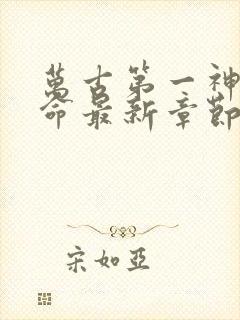 萬古第一神
命最新章節
宋如亞